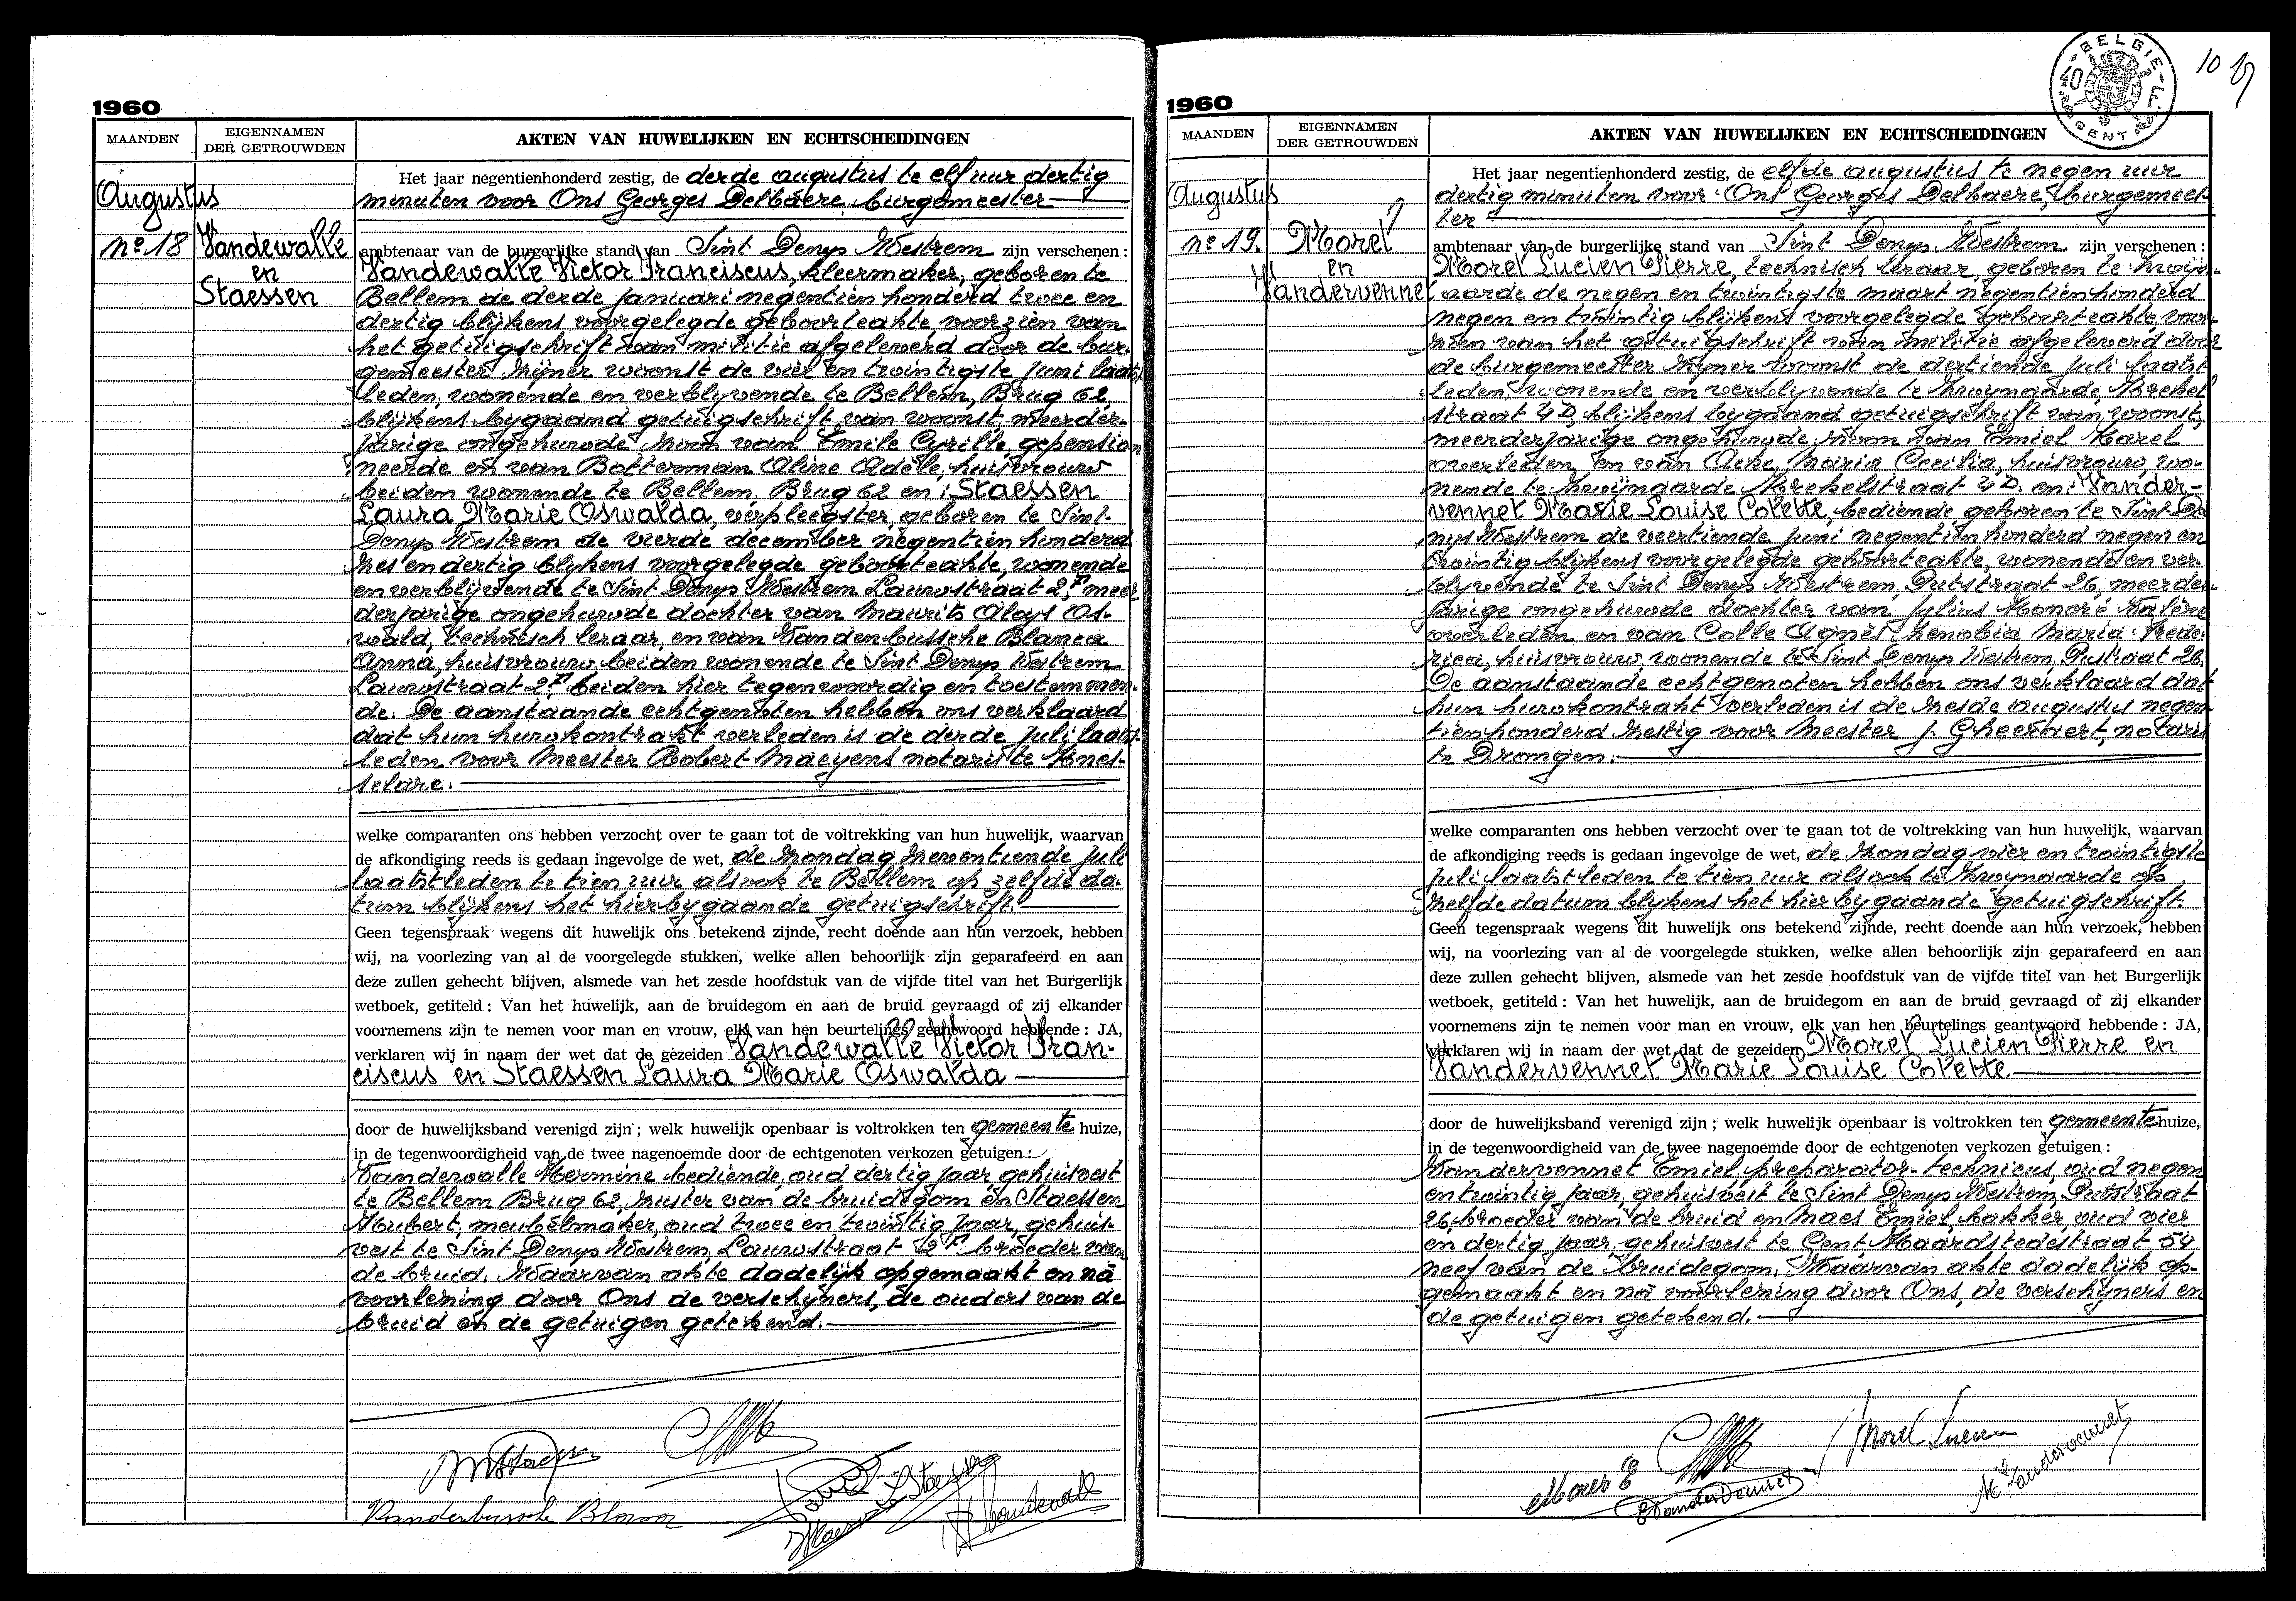 1960
MAANDEN
EIGENNAMEN
DER GETROUWDEN
AKTEN VAN HUWELIJKEN EN ECHTSCHEIDINGEN
Augustus
no 18
Vandewalle
en
Staessen
Het jaar negentienhonderd zestig, de derde augustus te elf uur dertig
minuten voor Ons Georges Delbaere burgemeester
ambtenaar van de burgerlijke stand van Sint Denys Westrem zijn verschenen :
Vandewalle Victor Franciscus, kleermaker, geboren te
Bellem de derde januari negentien honderd twee en
dertig blijkens voorgelegde geboorteakte, voorzien van
het getuigschrift van militie afgeleverd door de bur-
gemeester zijner woonst de vier en twintigste juni laatst-
leden, wonende en verblyvende te Bellem, Brug 62,
blijkens bygaand getuigschrift van woonst, meerder-
jarige ongehuwde zoon van Emile Cyrille, gepension-
neerde en van Botterman Aline Adèle, huisvrouw
beiden wonende te Bellem, Brug 62 en : Staessen
Laura Marie Oswalda, verpleegster, geboren te Sint-
Denys Westrem de vierde december negentien honderd
zes en dertig blykens voorgelegde geboorteakte, wonende
en verblijvende te Sint Denys Westrem Lauwstraat 2, meer
derjarige ongehuwde dochter van Maurits Aloys Os-
wald, technisch leraar, en van Vandenbussche Blanca
Anna, huisvrouw beiden wonende te Sint Denys Westrem
Lauwstraat 2, beiden hier tegenwoordig en toestemmen-
de. De aanstaande echtgenoten hebben ons verklaard
dat hun huwkontrakt verleden is de derde juli laatst-
leden voor Meester Robert Maeyens notaris te Knes-
selare.
welke comparanten ons hebben verzocht over te gaan tot de voltrekking van hun huwelijk, waarvan
de afkondiging reeds is gedaan ingevolge de wet, de zondag zeventiende juli
laatstleden te tien uur alsook te Bellem op zelfde da-
tum blijkens het hierbygaande getuigschrift.
Geen tegenspraak wegens dit huwelijk ons betekend zijnde, recht doende aan hun verzoek, hebben
wij, na voorlezing van al de voorgelegde stukken, welke allen behoorlijk zijn geparafeerd en aan
deze zullen gehecht blijven, alsmede van het zesde hoofdstuk van de vijfde titel van het Burgerlijk
wetboek, getiteld : Van het huwelijk, aan de bruidegom en aan de bruid gevraagd of zij elkander
voornemens zijn te nemen voor man en vrouw, elk van hen beurtelings geantwoord hebbende : JA,
verklaren wij in naam der wet dat de gezeiden Vandewalle Victor Fran-
ciscus en Staessen Laura Marie Oswalda
door de huwelijksband verenigd zijn ; welk huwelijk openbaar is voltrokken ten gemeente huize,
in de tegenwoordigheid van de twee nagenoemde door de echtgenoten verkozen getuigen :
Vandewalle Hermine bediende, oud dertig jaar gehuisvest
te Bellem Brug 62, zuster van de bruidegom en Staessen
Houbert, meubelmaker, oud twee en twintig jaar, gehuis-
vest te Sint Denys Westrem, Lauwstraat 2 broeder van
de bruid. Waarvan akte dadelijk opgemaakt en na
voorlezing door Ons de verschyners, de ouders van de
bruid en de getuigen getekend.
Vandenbussche Blanca
1960
BELGIE
GENT
10
MAANDEN
EIGENNAMEN
DER GETROUWDEN
AKTEN VAN HUWELIJKEN EN ECHTSCHEIDINGEN
Augustus
no 19.
Morel
en
Vandervennet
Het jaar negentienhonderd zestig, de elfde augustus te negen uur
dertig minuten voor Ons Georges Delbaere, burgemees-
ter
ambtenaar van de burgerlijke stand van Sint Denys Westrem zijn verschenen :
Morel Lucien Pierre, technisch leraar, geboren te Zwijn-
aarde de negen en twintigste maart negentienhonderd
negen en twintig blijkens voorgelegde geboorteakte, voor-
zien van het getuigschrift van militie afgeleverd door
de burgemeester zijner woonst de dertiende juli laatst
leden, wonende en verblyvende te Zwynaarde, Krekel
straat 4D, blijkens bygaand getuigschrift van woonst,
meerderjarige ongehuwde zoon van Emiel Karel
overleden en van Acke Maria Cecilia, huisvrouw wo-
nende te Zwijnaarde Krekelstraat 4D. en : Vander-
vennet Marie Louise Colette, bediende geboren te Sint De
nys Westrem de veertiende juni negentien honderd negen en
twintig blijkens voorgelegde geboorteakte, wonende en ver-
blyvende te Sint Denys Westrem Putstraat 26, meerder-
jarige ongehuwde dochter van Julius Honoré Valère
overleden en van Colle Agnès Zenobia Maria Fede-
rica, huisvrouw, wonende te Sint Denys Westrem Putstraat 26.
De aanstaande echtgenoten hebben ons verklaard dat
hun huwkontrakt verleden is de zesde augustus negen
tienhonderd zestig voor Meester J. Gheeraert, notaris
te Drongen.
welke comparanten ons hebben verzocht over te gaan tot de voltrekking van hun huwelijk, waarvan
de afkondiging reeds is gedaan ingevolge de wet, de zondag vier en twintigste
juli laatstleden te tien uur alsook te Zwynaarde op
zelfde datum blijkens het hierbygaande getuigschrift.
Geen tegenspraak wegens dit huwelijk ons betekend zijnde, recht doende aan hun verzoek, hebben
wij, na voorlezing van al de voorgelegde stukken, welke allen behoorlijk zijn geparafeerd en aan
deze zullen gehecht blijven, alsmede van het zesde hoofdstuk van de vijfde titel van het Burgerlijk
wetboek, getiteld : Van het huwelijk, aan de bruidegom en aan de bruid gevraagd of zij elkander
voornemens zijn te nemen voor man en vrouw, elk van hen beurtelings geantwoord hebbende : JA,
verklaren wij in naam der wet dat de gezeiden Morel Lucien Pierre en
Vandervennet Marie Louise Colette
door de huwelijksband verenigd zijn ; welk huwelijk openbaar is voltrokken ten gemeente huize,
in de tegenwoordigheid van de twee nagenoemde door de echtgenoten verkozen getuigen :
Vandervennet Emiel, preparator-technicus, oud negen
en twintig jaar, gehuisvest te Sint Denys Westrem, Putstraat
26, broeder van de bruid en Maes Emiel, bakker, oud vier
en dertig jaar, gehuisvest te Gent, Maardstedestraat 54
neef van de bruidegom. Waarvan akte dadelijk op-
gemaakt en na voorlezing door Ons, de verschyners en
de getuigen getekend.
Morel Lucien